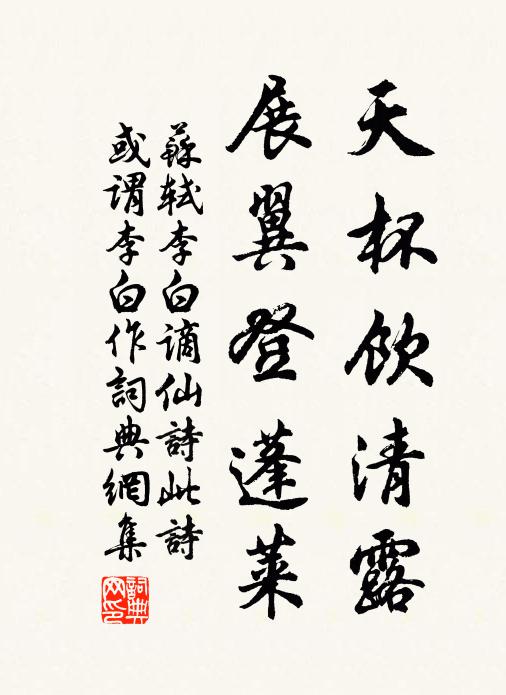 天杯飲清露
展翼登蓬萊
蘇軾李白謫仙詩此詩
或謂李白作詞典網集
詞典
网印